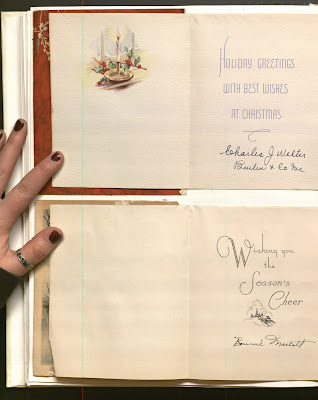 HOLIDAY GREETINGS
WITH BEST WISHES
AT CHRISTMAS
Charles J Welter
& Co Inc
Wishing you
the
Season's
Cheer
Bonnie